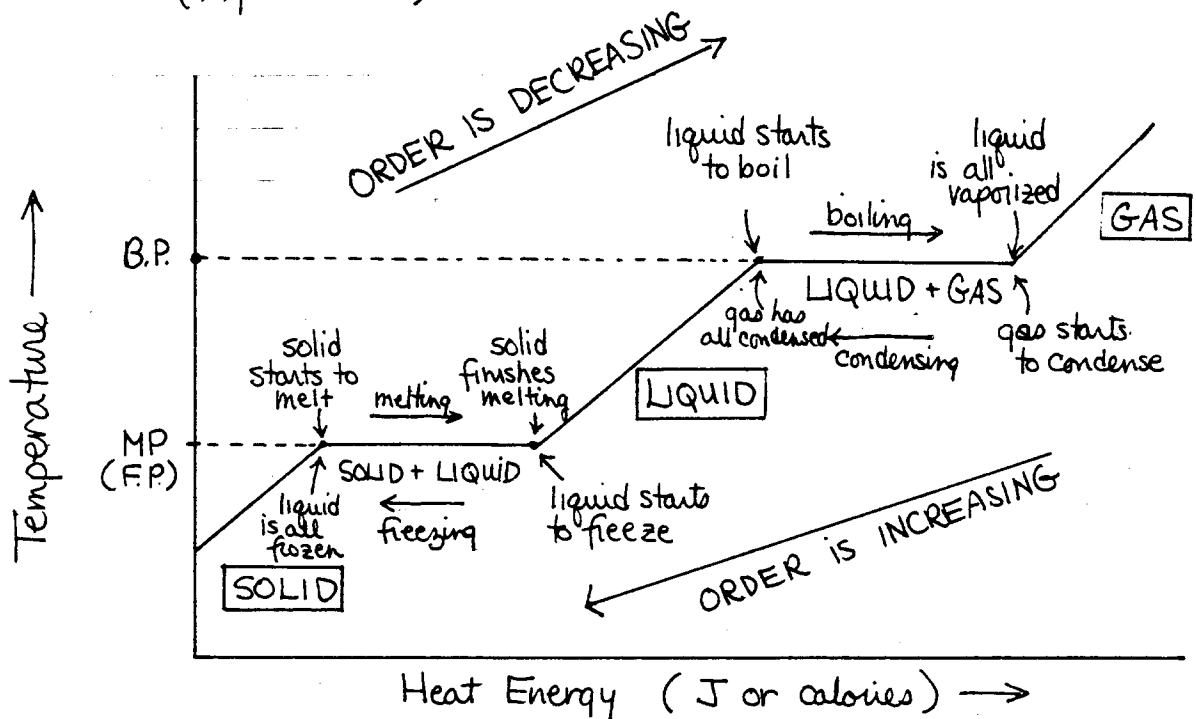 ORDER IS DECREASING
liquid starts
to boil
liquid
is all
vaporized
boiling
GAS
B.P.
LIQUID + GAS
gas has
all condensed
condensing
gas starts
to condense
solid
starts to
melt
melting
solid
finishes
melting
LIQUID
MP
(F.P.)
SOLID + LIQUID
liquid
is all
frozen
freezing
liquid starts
to freeze
SOLID
ORDER IS INCREASING
Temperature
Heat Energy (J or calories)